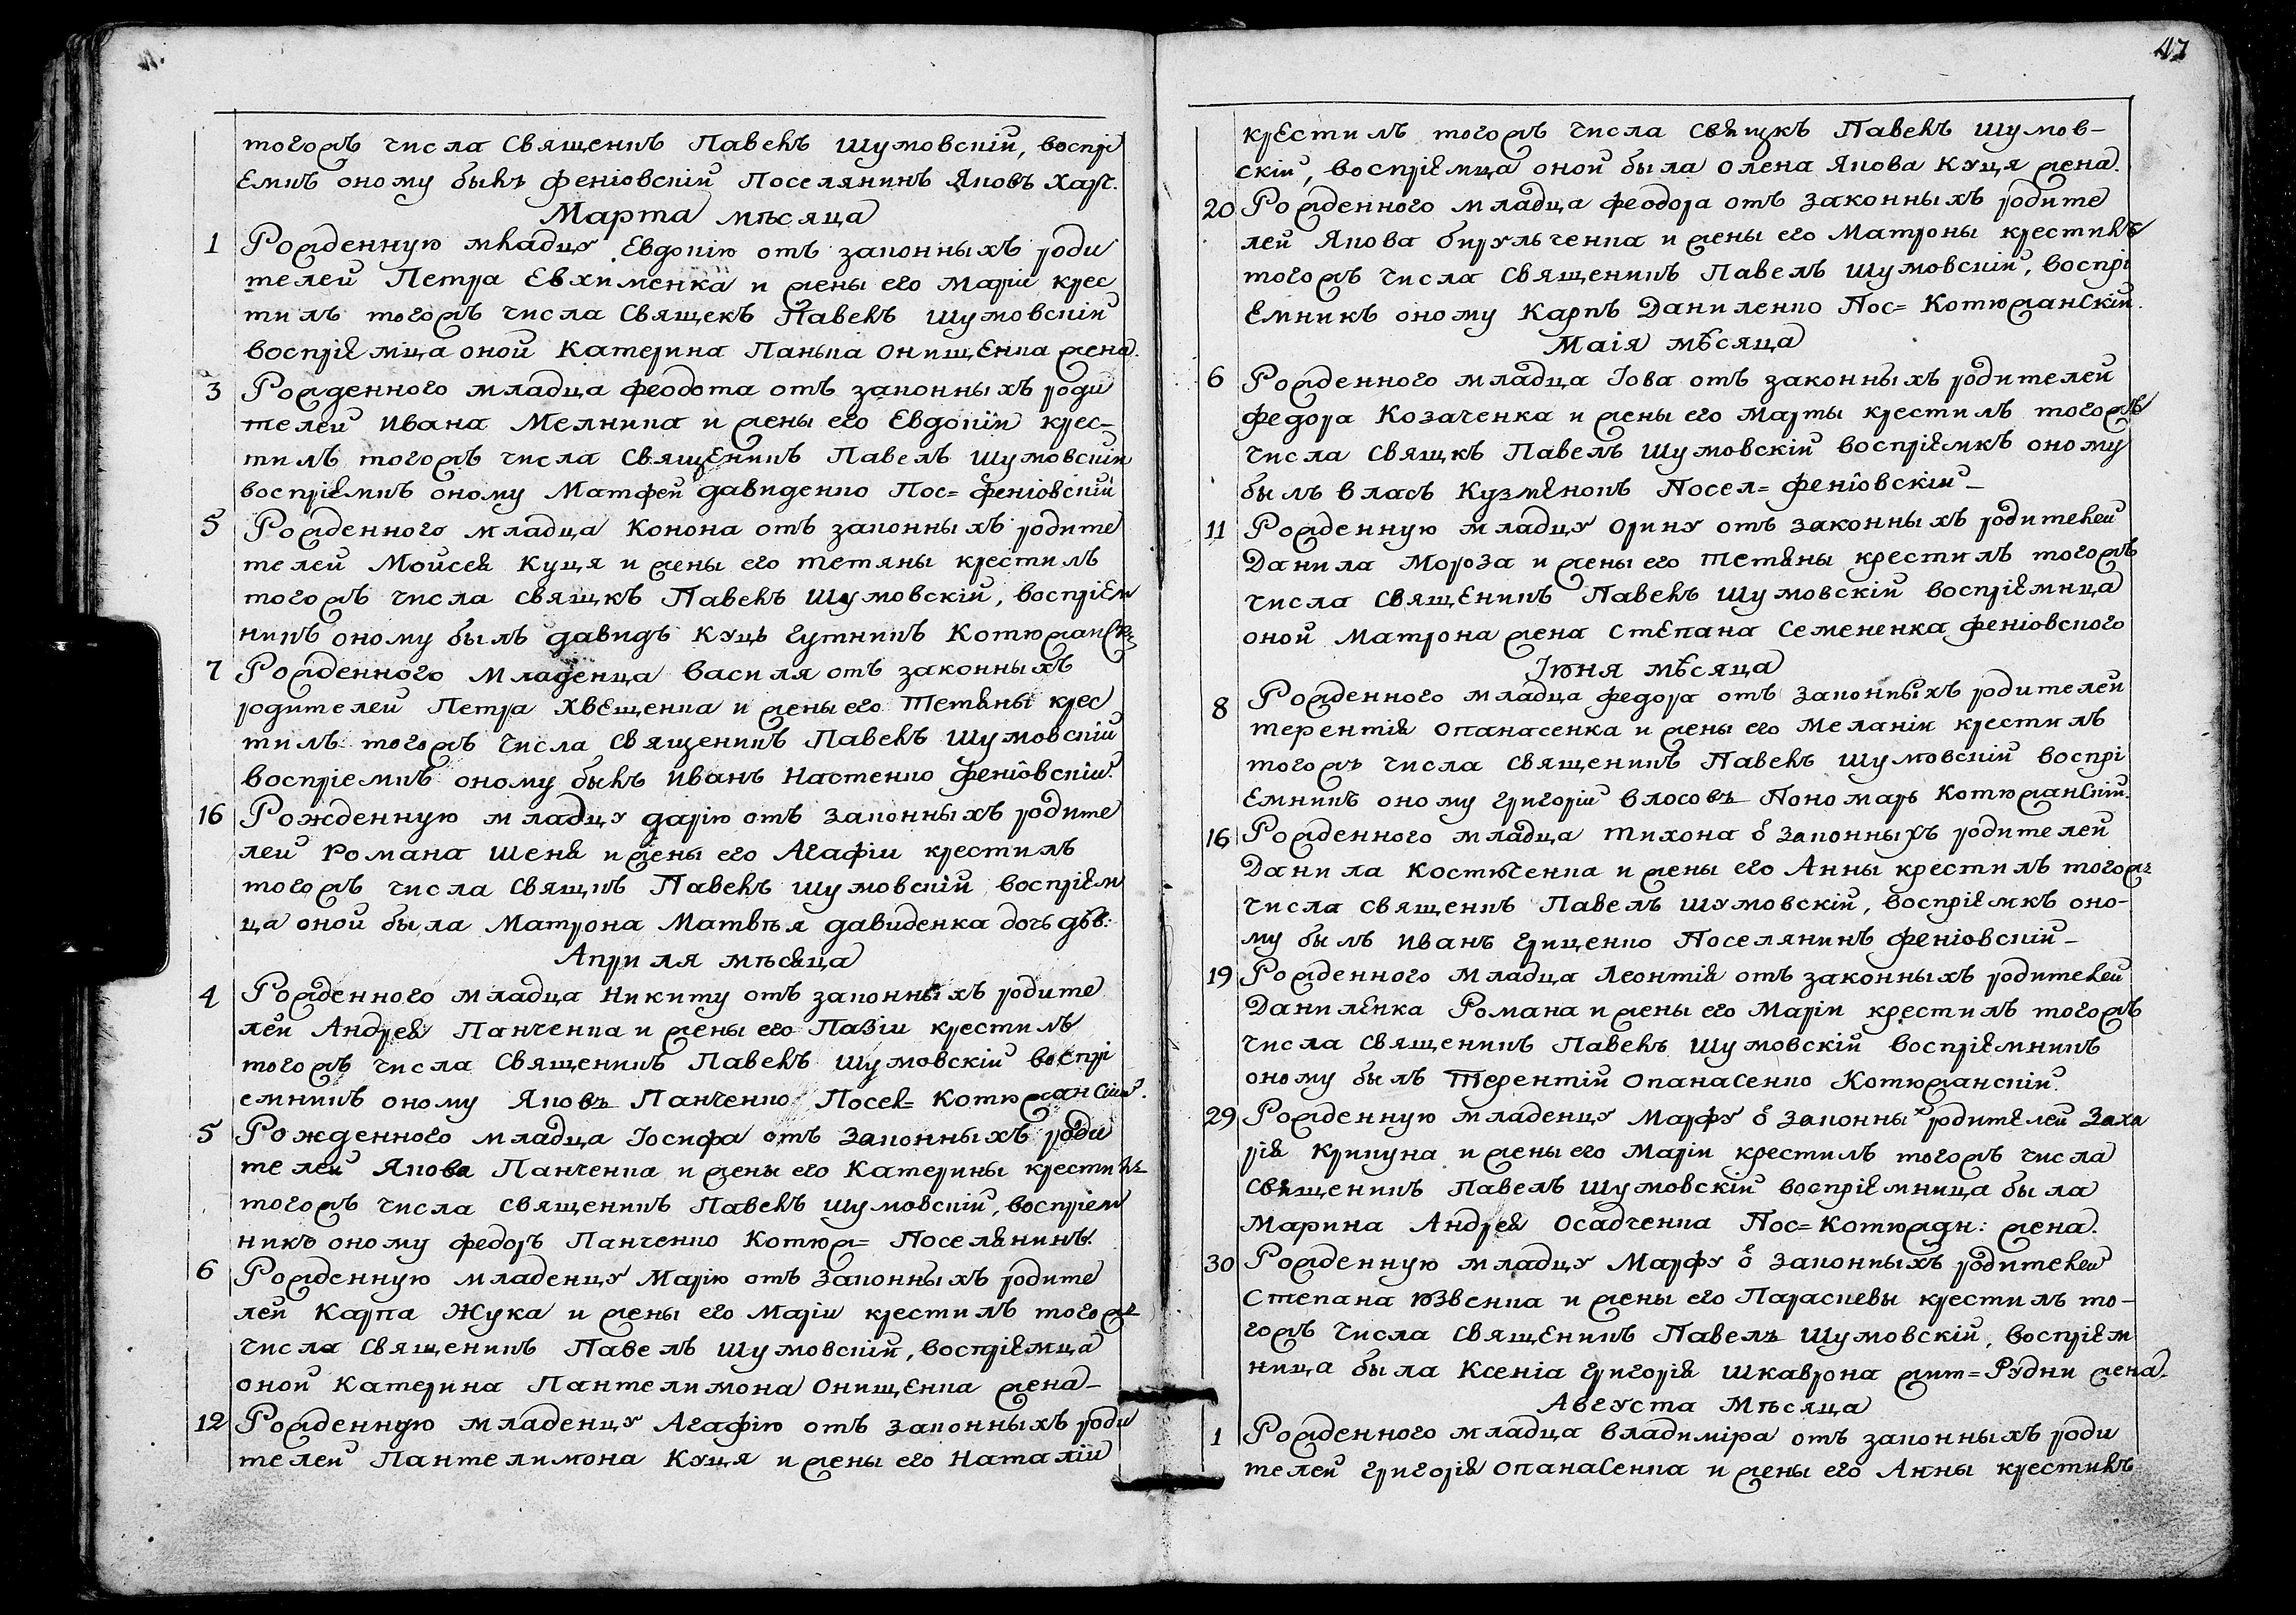 тогожъ числа Священикъ Павелъ Шумовскій, воспрі
Емикъ оному былъ феніовскій Поселянинъ Яковъ Харч.
Марта мѣсяца
1 Рожденную младцу Евдокію отъ законныхъ роди
телей Петра Евхименка и жены его Маріи крес
тилъ тогожъ числа Священкъ Павелъ Шумовскій
воспріемица оной Катерина Панька Онищенка жена.
3 Рожденного младца феодота отъ законныхъ роди
телей Ивана Мелника и жены его Евдокіи крес-
тилъ тогожъ числа Священикъ Павелъ Шумовскій
воспріемикъ оному Матфей давиденко Пос= феніовскій
5 Рожденного младца Конона отъ законныхъ родите
телей Мойсея Куця и жены его Тетяны крестилъ
тогожъ числа священкъ Павелъ Шумовскій, воспріем
никъ оному былъ давидъ Куцъ гутникъ Котюжанск:
7 Рожденного Младенца Василя отъ законныхъ
родителей Петра Хвещенка и жены его Тетяны крес
тилъ тогожъ числа Священикъ Павелъ Шумовскій
воспріемикъ оному былъ Иванъ Настенко феніовскій.
16 Рожденную младцу дарію отъ законныхъ родите
лей Романа Шеня и жены его Агафіи крестилъ
тогожъ числа Свящкъ Павелъ Шумовскій воспріем
ца оной была Матрона Матвѣя давиденка дочь дѣв:
Априля мѣсяца
4 Рожденного младца Никиту отъ законныхъ родите
лей Андрея Панченка и жены его Пазіи крестилъ
тогожъ числа Священикъ Павелъ Шумовскій воспрі
емникъ оному Яковъ Панченко Посел= Котюжанскій.
5 Рожденного младца Іосифа отъ законныхъ роди
телей Якова Панченка и жены его Катерины крестилъ
тогожъ числа священикъ Павелъ Шумовскій, воспріем
никъ оному федоръ Панченко Котюж= Поселянинъ.
6 Рожденную младенцу Марію отъ законныхъ родите
лей Карпа Жука и жены его Маріи крестилъ тогожъ
числа Священикъ Павелъ Шумовскій, воспріемца
оной Катерина Пантелимона Онищенка жена-
12 Рожденную младенцу Агафію отъ законныхъ роди
телей Пантелимона Куця и жены его Наталіи
47
крестилъ тогожъ числа свящкъ Павелъ Шумов-
скій, воспріемца оной была Олена Якова Куця жена.
20 Рожденного младца феодора отъ законныхъ родите
лей Якова бирульченка и жены его Матроны крестилъ
тогожъ числа Священикъ Павелъ Шумовскій, воспрі
Емникъ оному Карпъ Даниленко Пос= Котюжанскій.
Маія мѣсяца
6 Рожденного младца Іова отъ законныхъ родителей
федора Козаченка и жены его Марты крестилъ тогожъ
числа Свящкъ Павелъ Шумовскій воспріемкъ оному
былъ Власъ Кузменокъ Посел= феніовскій-
11 Рожденную младцу Орину отъ законныхъ родителей
Данила Мороза и жены его Тетяны крестилъ тогожъ
числа Священикъ Павелъ Шумовскій воспріемница
оной Матрона жена Степана Семененка феніовского
Іюня мѣсяца
8 Рожденного младца федора отъ законныхъ родителей
Терентія Опанасенка и жены его Меланіи крестилъ
тогожъ числа Священикъ Павелъ Шумовскій воспрі
Емникъ оному Григорій Власовъ Пономарь Котюжанскій.
16 Рожденного младца Тихона о законныхъ родителей
Данила Костюченка и жены его Анны крестилъ тогожъ
числа священикъ Павелъ Шумовскій, воспріемкъ оно-
му былъ Иванъ Грищенко Поселянинъ феніовскій-
19 Рожденного младца Леонтія отъ законныхъ родителей
Даниленка Романа и жены его Маріи крестилъ тогожъ
числа Священикъ Павелъ Шумовскій воспріемникъ
оному былъ Терентій Опанасенко Котюжанскій.
29 Рожденную младенцу Марфу о законных родителей Заха
рія Крикуна и жены его Маріи крестилъ тогожъ числа
Священикъ Павелъ Шумовскій воспріемница была
Марина Андрея Осадченка Пос= Котюжан: жена.
30 Рожденную младцу Марфу о законныхъ родителей
Степана Юзвенка и жены его Параскевы крестилъ то-
гожъ числа Священикъ Павелъ Шумовскій, воспріем
ница была Ксеніа Григорія Шкаврона жит= Рудни жена.
Августа Мѣсяца
1 Рожденного младца Владиміра отъ законныхъ роди
телей Григорія Опанасенка и жены его Анны крестилъ